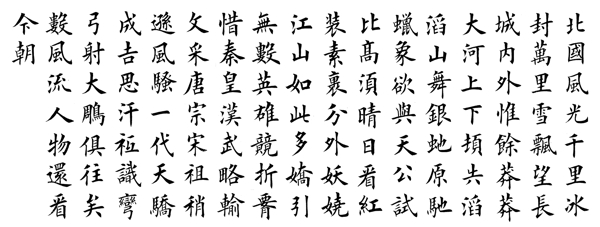 北國風光千里冰
封萬里雪飄望長
城內外惟餘莽莽
大河上下頓失滔
滔山舞銀虵原馳
蠟象欲與天公試
比髙須晴日看紅
裝素裹分外妖嬈
江山如此多嬌引
無數英雄競折腰
惜秦皇漢武略輸
文采唐宗宋祖稍
遜風騷一代天驕
成吉思汗祗識彎
弓射大鵰俱往矣
數風流人物還看
今朝